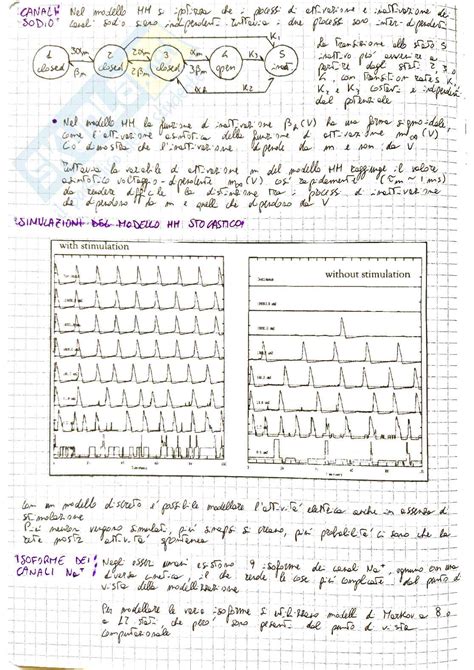 CANALE Nel modello HH si ipotizza che i processi di attivazione e inattivazione dei
SODIO canali sodio siano indipendenti. Tuttavia i due processi sono inter-dipendenti
3αm 2αm αm K3
1 2 3 4 5
closed closed closed open inatt.
βm 2βm 3βm
K1 K2
La transizione allo stato 5
inattivo può avvenire a
partire dagli stati 2 3 o
4, con transition rates K1
K2 e K3 costanti e indipendenti
dal potenziale
• Nel modello HH la funzione di inattivazione βh(V) ha una forma sigmoidale,
come l'attivazione asintotica della funzione di attivazione m∞(V)
Ciò dimostra che l'inattivazione dipende da m e non da V
Tuttavia la variabile di attivazione m del modello HH raggiunge il valore
asintotico voltaggio-dipendente m∞(V) così rapidamente (τm ~ 1ms)
da rendere difficile la distinzione tra i processi di inattivazione
che dipendono da m e quelli che dipendono da V
SIMULAZIONI DEL MODELLO HH STOCASTICO
with stimulation
without stimulation
Con un modello discreto è possibile modellare l'attività elettrica anche in assenza di
stimolazione
Più neuroni vengono simulati, più sinapsi si creano, più probabilità ci sono che la
rete mostri attività spontanea
ISOFORME DEI Negli esseri umani esistono 9 isoforme dei canali Na+, ognuno con una
CANALI Na+: diversa cinetica il che rende le cose più complicate dal punto di
vista della modellizzazione
Per modellare le varie isoforme si utilizzano modelli di Markov a 8 o
a 12 stati, che però sono pesanti dal punto di vista
computazionale